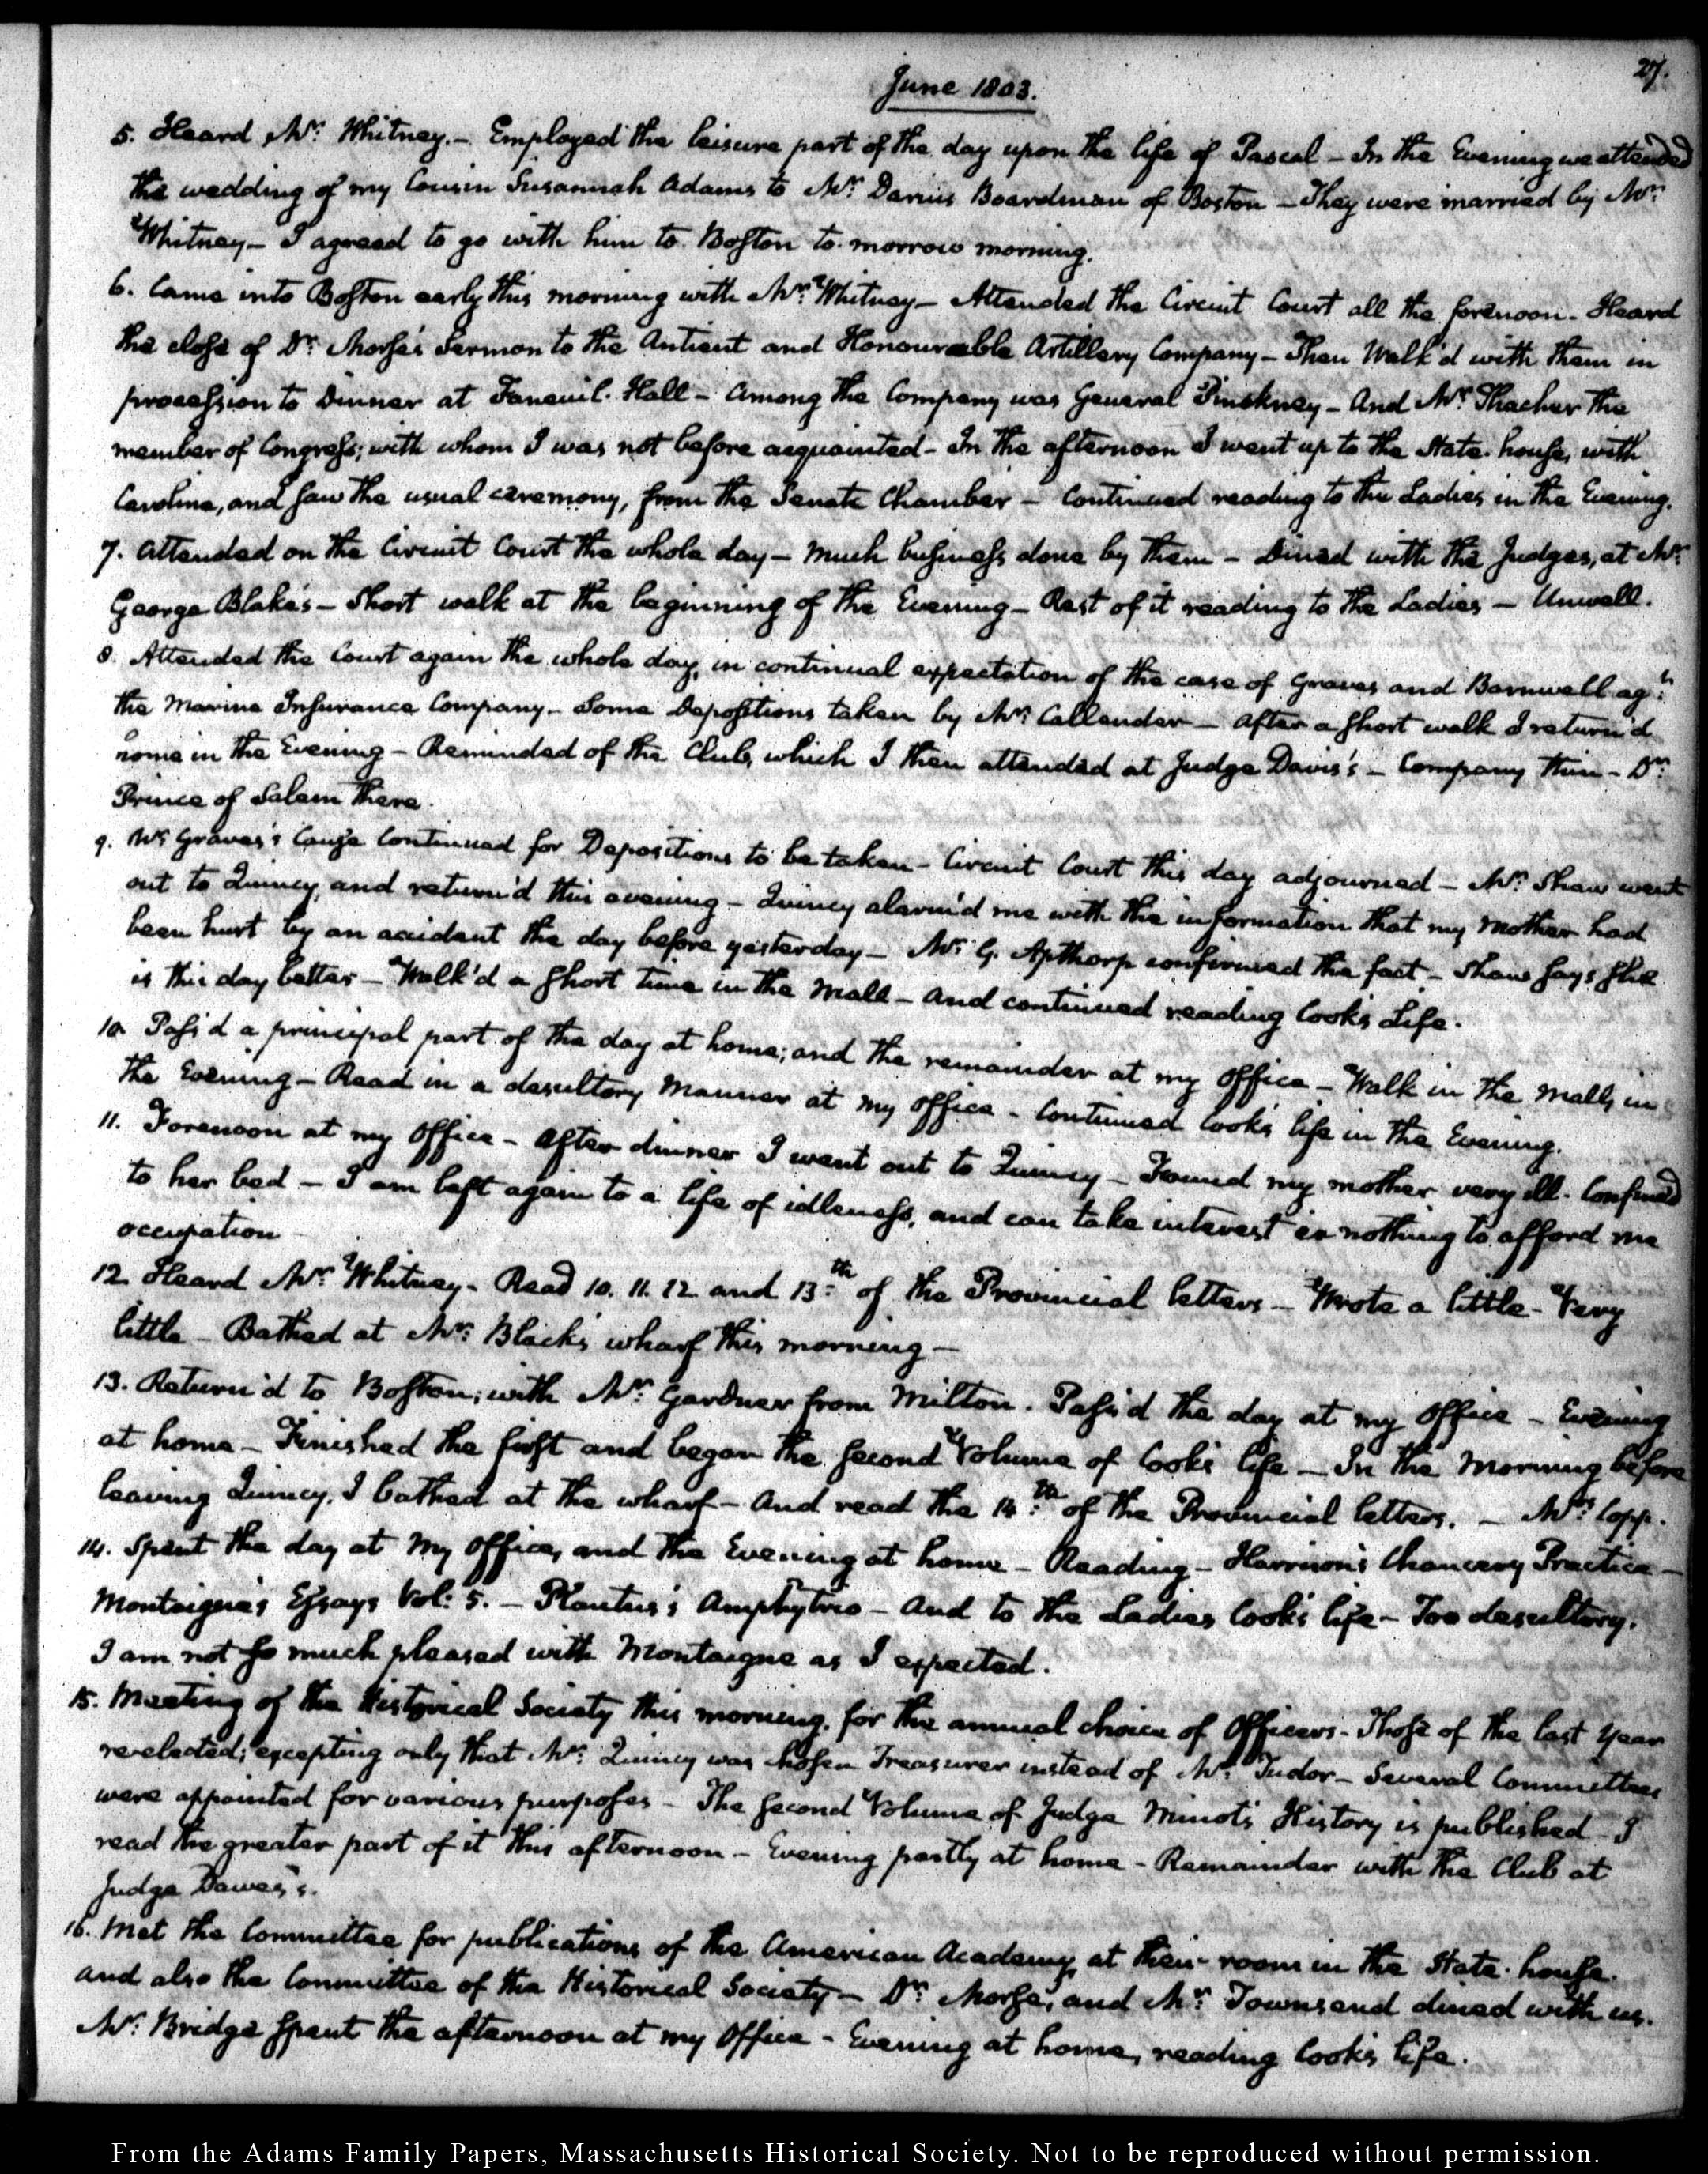 27.
June 1803.
5. Heard Mr. Whitney. – Employed the leisure part of the day upon the life of Pascal – In the Evening we attended
the wedding of my Cousin Susannah Adams to Mr. Darius Boardman of Boston – They were married by Mr.
Whitney – I agreed to go with him to Boston to-morrow morning.
6. Came into Boston early this morning with Mr. Whitney – Attended the Circuit Court all the forenoon. Heard
the close of Dr. Morse's Sermon to the Antient and Honourable Artillery Company – Then Walk'd with them in
procession to Dinner at Faneuil-Hall – Among the Company was General Pinckney – And Mr. Thacher the
member of Congress; with whom I was not before acquainted – In the afternoon I went up to the State-house, with
Caroline, and saw the usual ceremony, from the Senate Chamber – Continued reading to the Ladies in the Evening.
7. Attended on the Circuit Court the whole day – Much business done by them – Dined with the Judges, at Mr.
George Blake's – Short walk at the beginning of the Evening – Rest of it reading to the Ladies – Unwell.
8. Attended the Court again the whole day, in continual expectation of the case of Graves and Barnwell agt.
the Marine Insurance Company – Some Depositions taken by Mr. Callender – After a short walk I return'd
home in the Evening – Reminded of the Club, which I then attended at Judge Davis's – Company thin – Dr.
Prince of Salem there.
9. Mr. Graves's Cause Continued for Depositions to be taken – Circuit Court this day adjourned – Mr. Shaw went
out to Quincy, and return'd this evening – Quincy alarm'd me with the information that my Mother had
been hurt by an accident the day before yesterday – Mr. G. Apthorp confirmed the fact – Shaw says she
is this day better – Walk'd a short time in the Mall – And continued reading Cook's Life.
10. Pass'd a principal part of the day at home; and the remainder at my Office – Walk in the Mall, in
the Evening – Read in a desultory Manner at my office – Continued Cook's life in the Evening.
11. Forenoon at my Office – After dinner I went out to Quincy – Found my mother very ill. Confined
to her bed – I am left again to a life of idleness, and can take interest in nothing to afford me
occupation
12. Heard Mr. Whitney – Read 10. 11. 12 and 13th. of the Provincial letters – Wrote a little – Very
little – Bathed at Mr. Black's wharf this morning –
13. Return'd to Boston; with Mr. Gardner from Milton. Pass'd the day at my Office – Evening
at home – Finished the first and began the second Volume of Cook's life – In the Morning before
leaving Quincy, I bathed at the wharf – And read the 14th. of the Provincial letters. – Mrs. Copp.
14. Spent the day at my Office, and the Evening at home – Reading – Harrison's Chancery Practice –
Montaigne's Essays Vol: 5. – Plautus's Amphytrio – And to the Ladies Cook's life – Too desultory.
I am not so much pleased with Montaigne as I expected.
15. Meeting of the Historical Society this morning, for the annual choice of Officers – Those of the last Year
re-elected; excepting only that Mr. Quincy was chosen Treasurer instead of Mr. Tudor – Several Committees
were appointed for various purposes – The second Volume of Judge Minot's History is published – I
read the greater part of it this afternoon – Evening partly at home – Remainder with the Club at
Judge Dawes's.
16. Met the Committee for publications of the American Academy, at their room in the State-house.
and also the Committee of the Historical Society – Dr. Morse, and Mr. Townsend dined with us.
Mr. Bridge spent the afternoon at my Office – Evening at home, reading Cook's life.
From the Adams Family Papers, Massachusetts Historical Society. Not to be reproduced without permission.